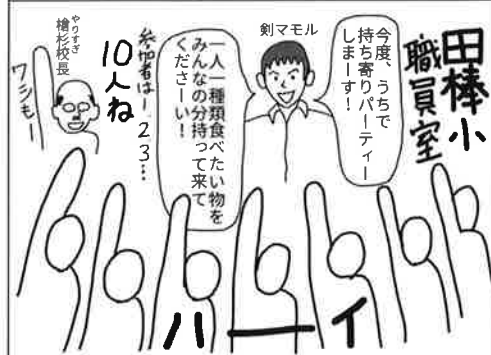 田棒小
職員室
今度、うちで
持ち寄りパーティー
しまーす！
剣マモル
一人一種類食べたい物を
みんなの分持って来て
くださーい！
参加者は1、2 3…
10人ね
やりすぎ
檜杉校長
ワシもー
ハーイ